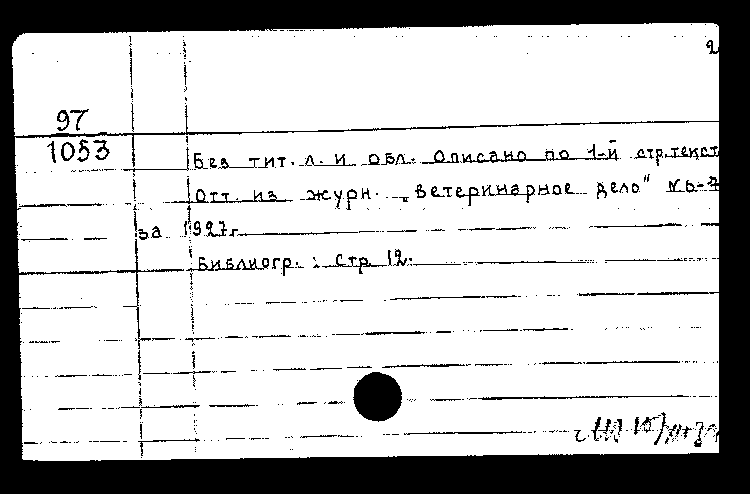 2
97
1053
Без тит. л. и обл. Описано по 1-й стр. текст
Отт. из журн. „Ветеринарное дело" № 6-7
за 1927г.
Библиогр.: стр 12.